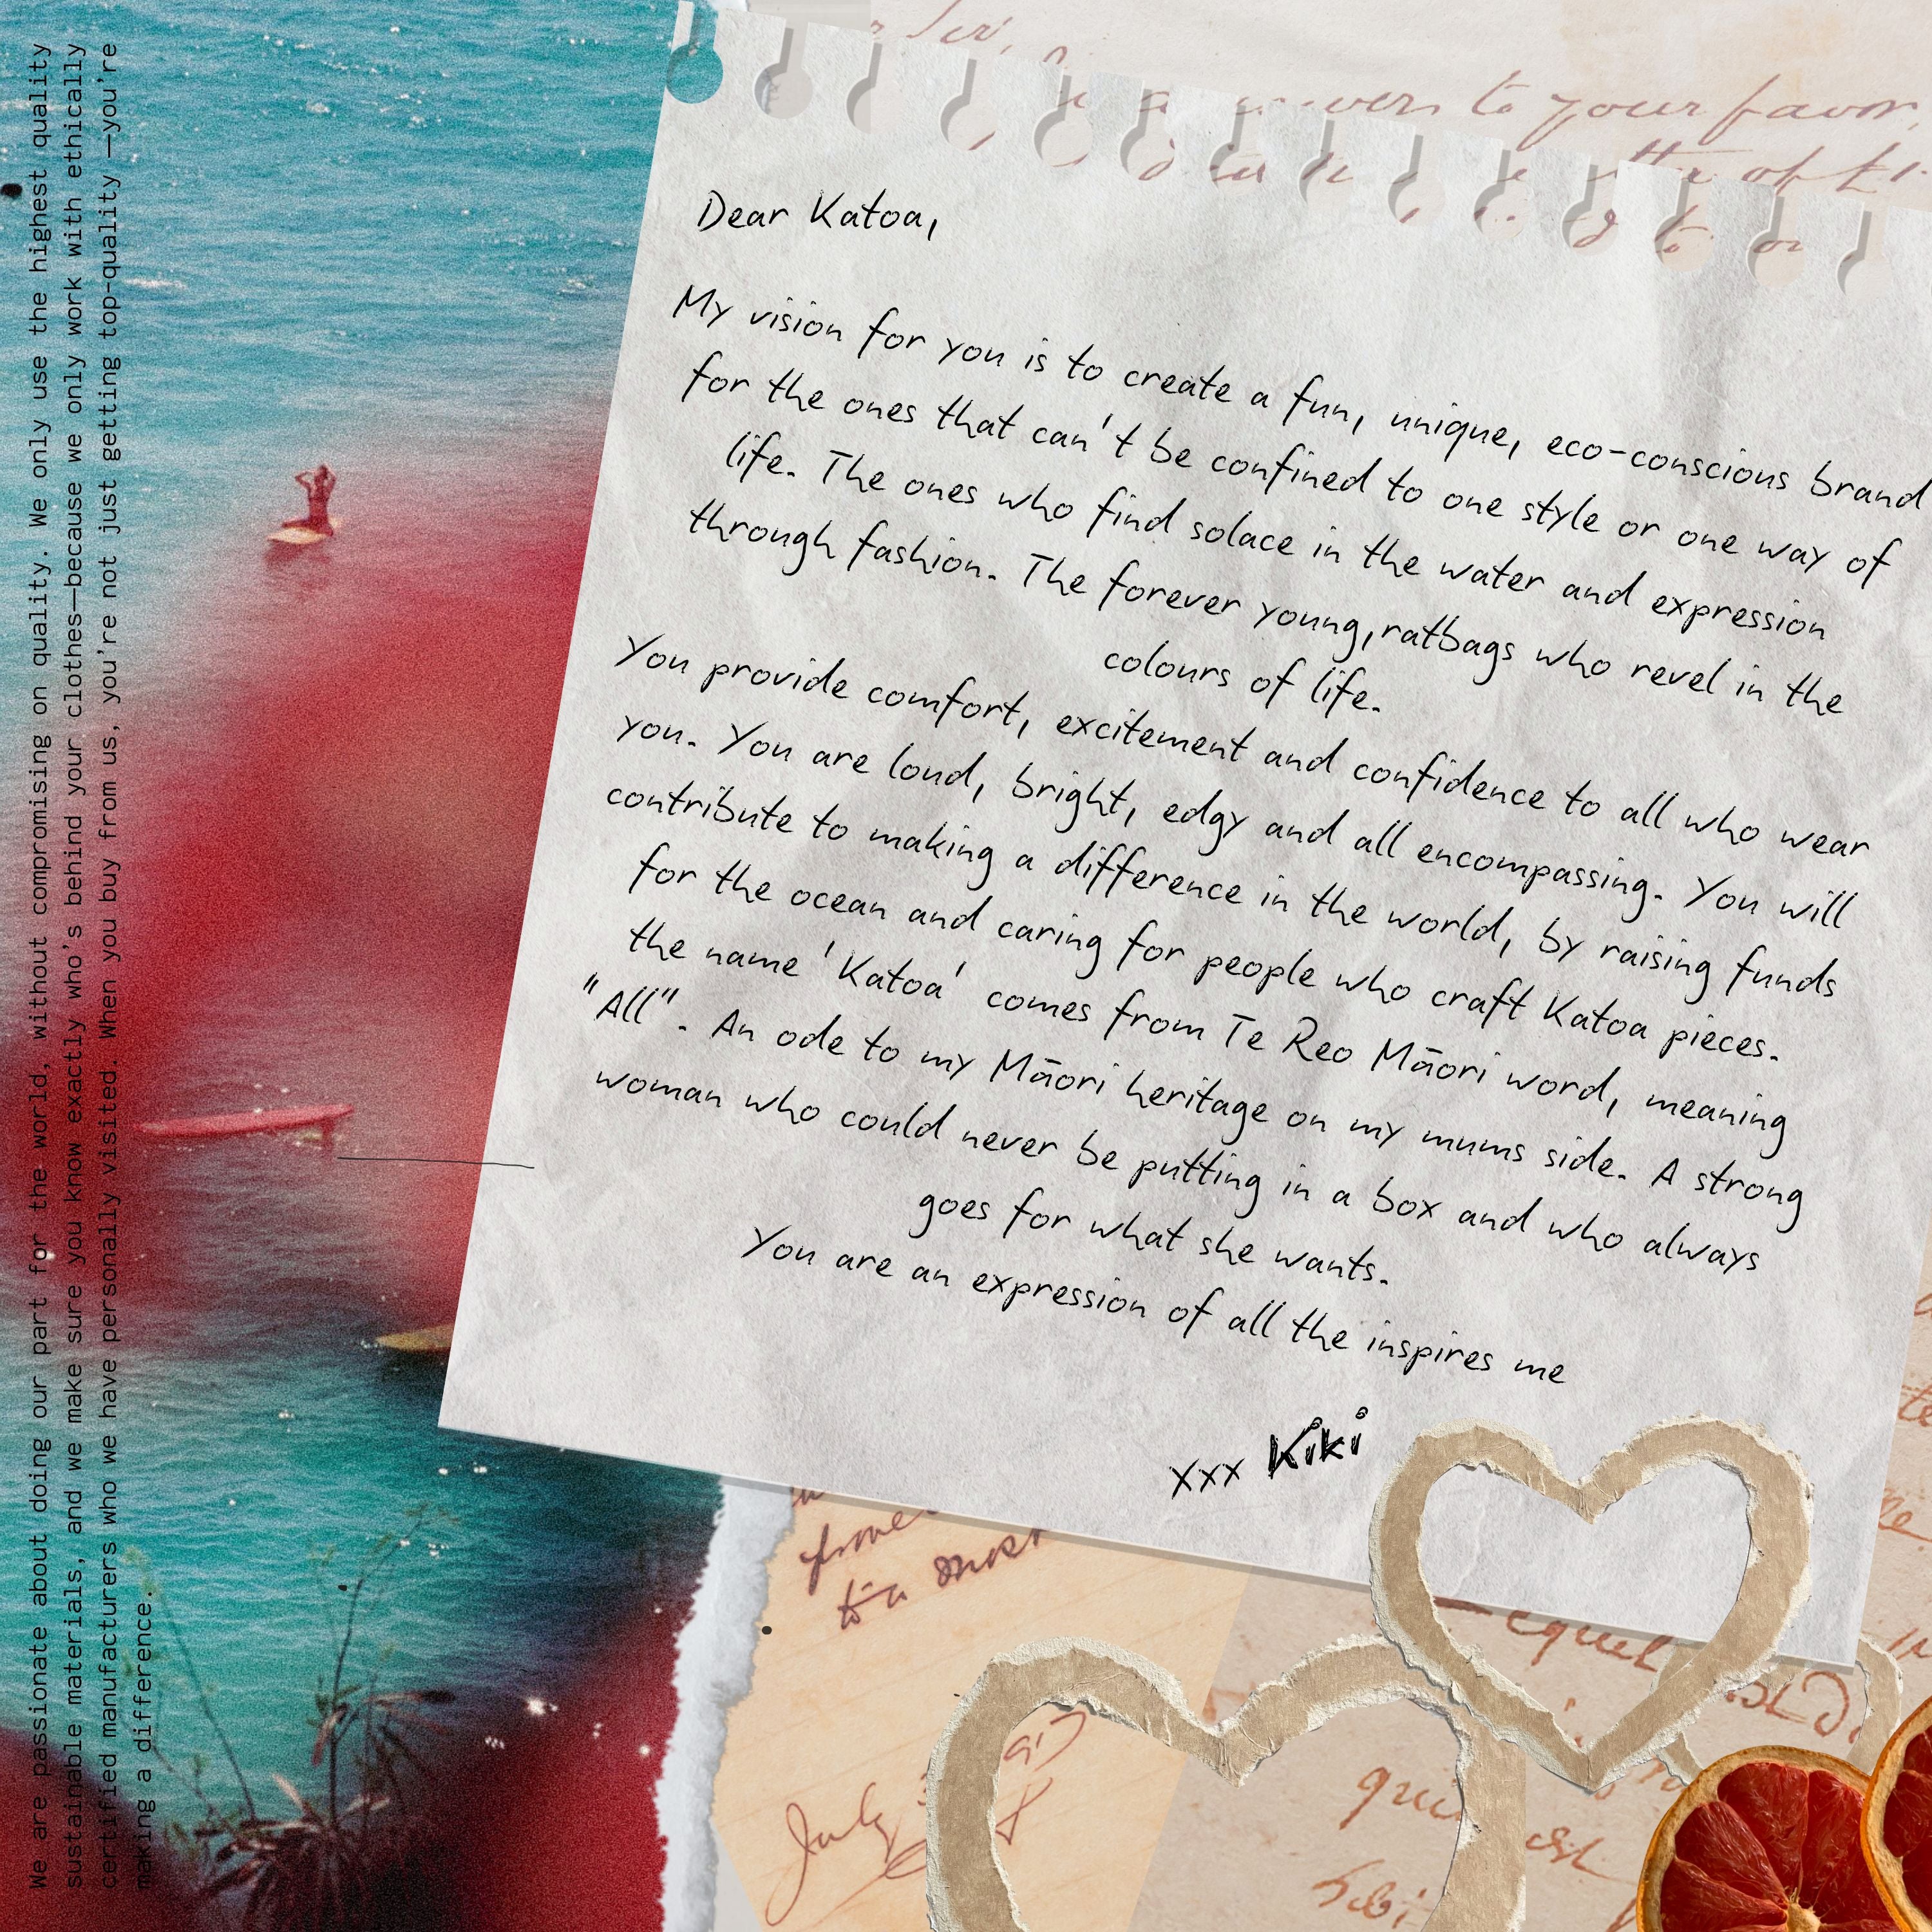 We are passionate about doing our part for the world, without compromising on quality. We only use the highest quality
sustainable materials, and we make sure you know exactly who's behind your clothes—because we only work with ethically
certified manufacturers who we have personally visited. When you buy from us, you're not just getting top-quality —you're
making a difference.
to your favor,
Dear Katoa,
My vision for you is to create a fun, unique, eco-conscious brand
for the ones that can't be confined to one style or one way of
life. The ones who find solace in the water and expression
through fashion. The forever young,ratbags who revel in the
colours of life.
You provide comfort, excitement and confidence to all who wear
you. You are loud, bright, edgy and all encompassing. You will
contribute to making a difference in the world, by raising funds
for the ocean and caring for people who craft Katoa pieces.
the name 'Katoa' comes from Te Reo Māori word, meaning
"All". An ode to my Māori heritage on my mums side. A strong
woman who could never be putting in a box and who always
goes for what she wants.
You are an expression of all the inspires me
xxx Kiki
July